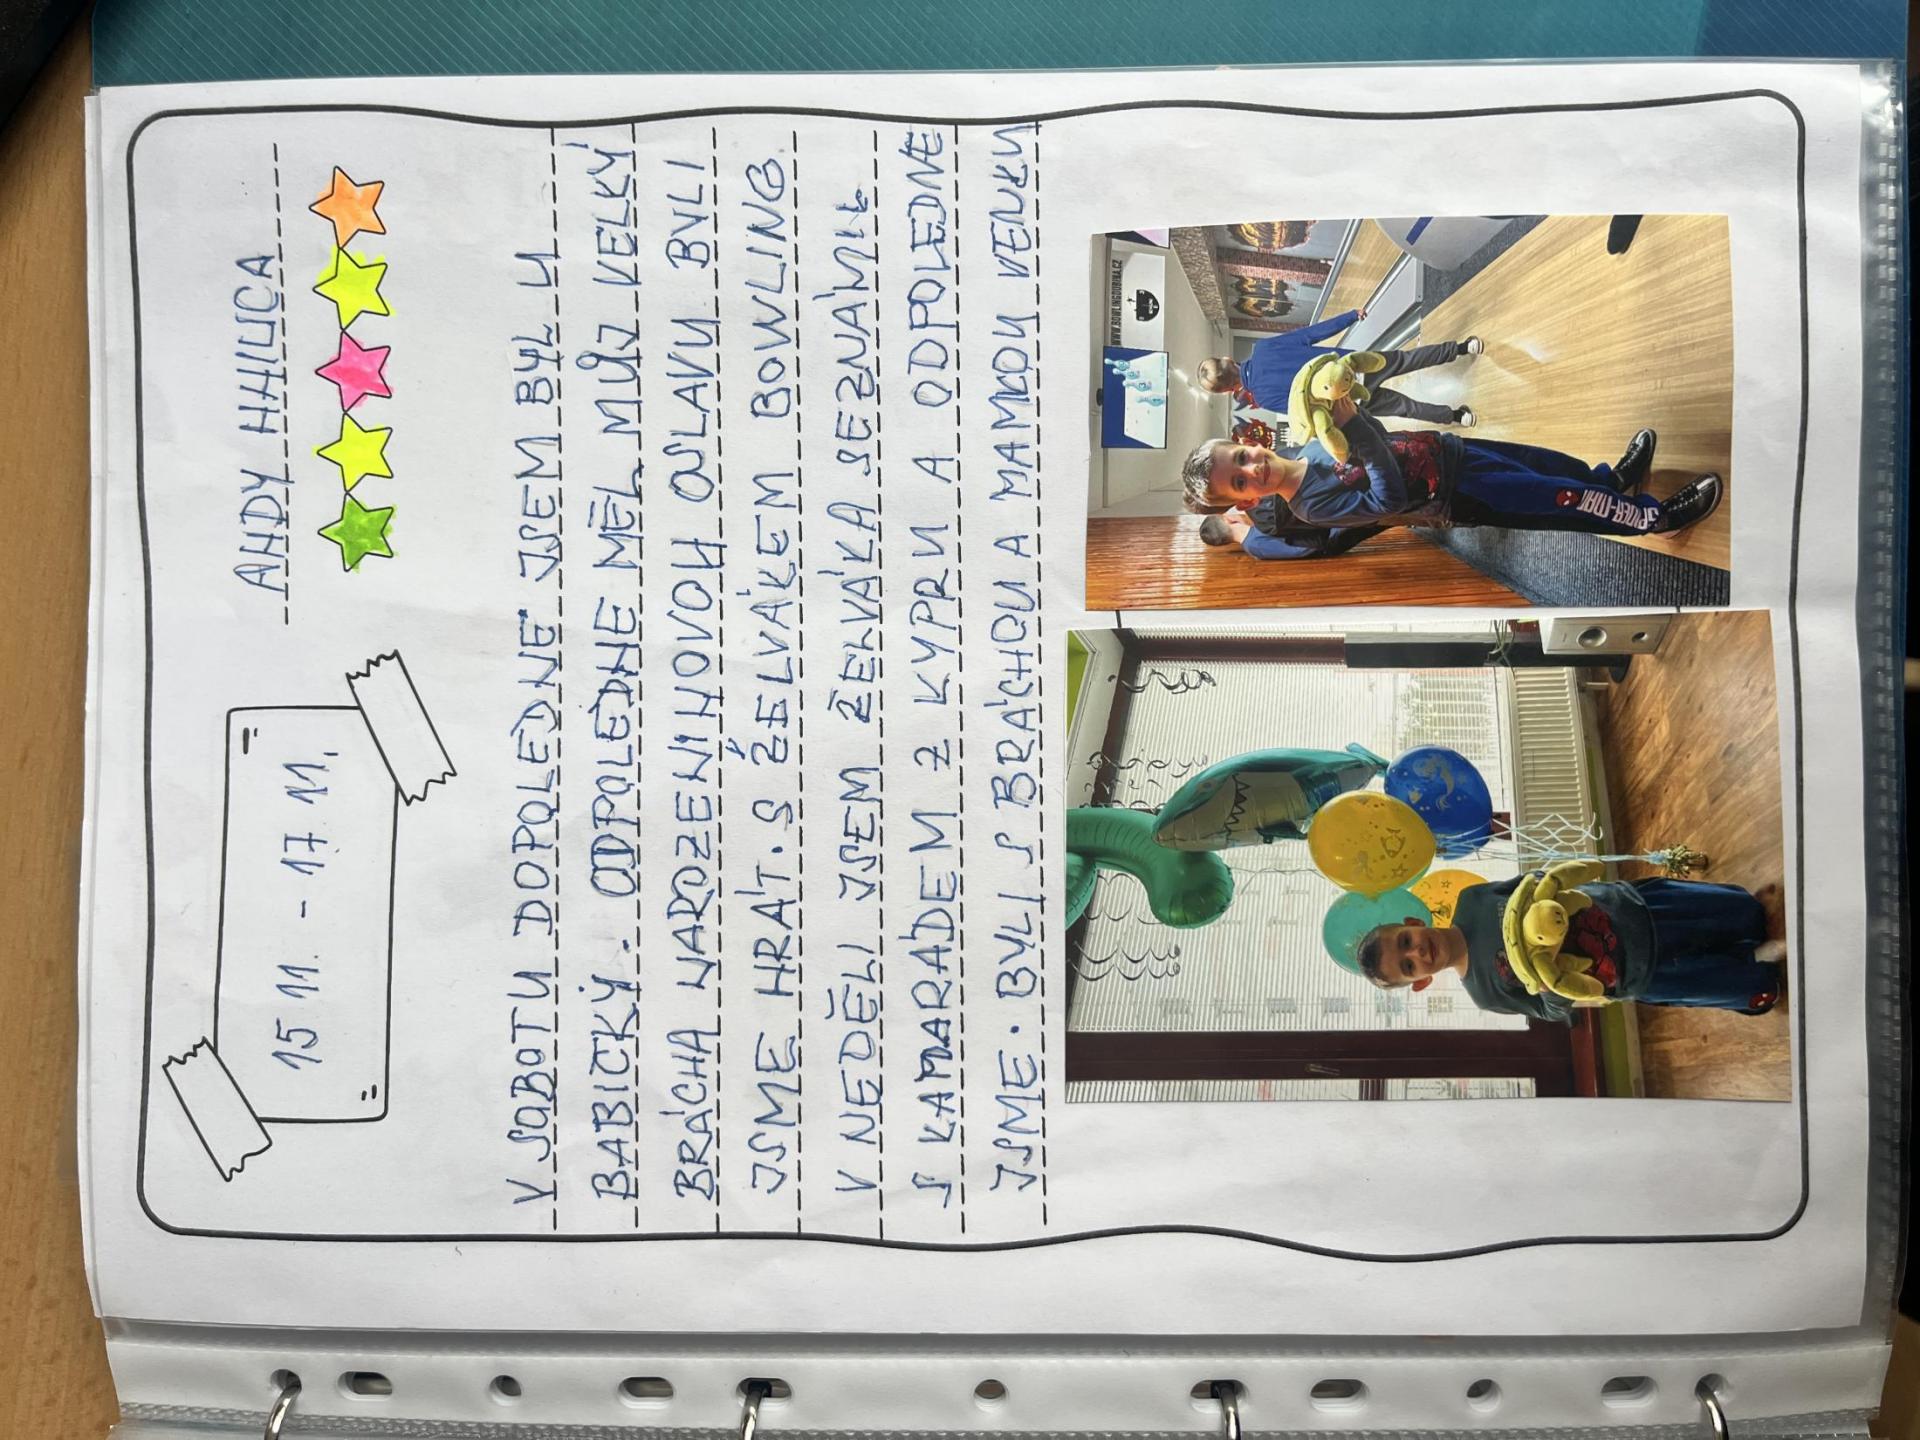 15 11. - 17. 11.
ANDY HHILICA
V SOBOTU DOPOLEDNE JSEM BYL U
BABIČKY. ODPOLEDNE MĚL MŮJ VELKÝ
BRÁCHA NAROZENINOVOU OSLAVU BYLI
JSME HRÁT. S ŽELVÁKEM BOWLING.
V NEDĚLI JSEM ŽELVÁKA SEZNÁMIL
S KAMARÁDEM Z KYPRU A ODPOLEDNE
JSME. BYLI S BRÁCHOU A MAMKOU VENKU
WWW.BOWLINGDUBINA.CZ
SPIDER-MAN